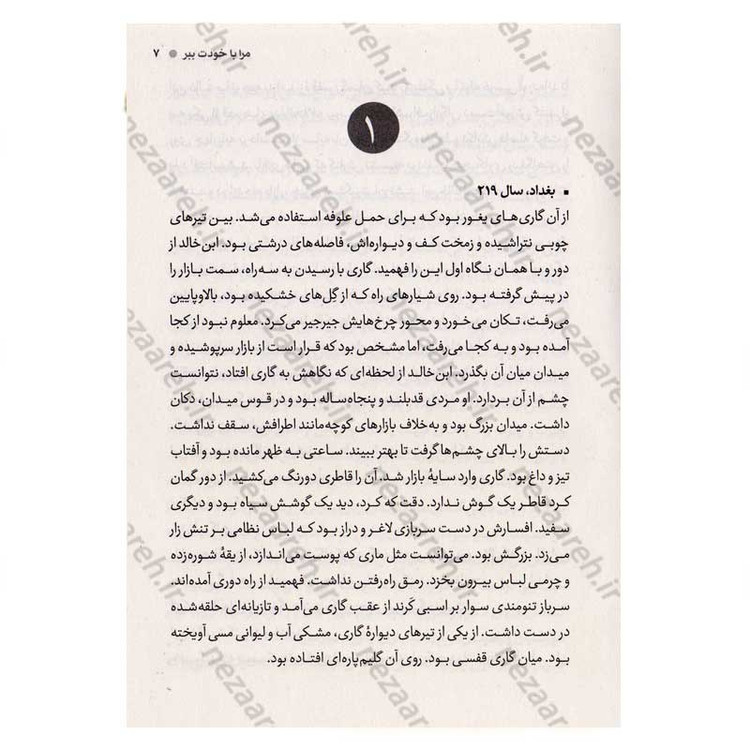 مرا با خودت ببر ● ۷
۱
▪ بغداد، سال ۲۱۹
از آن گاری‌های یغور بود که برای حمل علوفه استفاده می‌شد. بین تیرهای
چوبی نتراشیده و زمخت کف و دیواره‌اش، فاصله‌های درشتی بود. ابن‌خالد از
دور و با همان نگاه اول این را فهمید. گاری با رسیدن به سه‌راه، سمت بازار را
در پیش گرفته بود. روی شیارهای راه که از گِل‌های خشکیده بود، بالاوپایین
می‌رفت، تکان می‌خورد و محور چرخ‌هایش جیرجیر می‌کرد. معلوم نبود از کجا
آمده بود و به کجا می‌رفت، اما مشخص بود که قرار است از بازار سرپوشیده و
میدان میان آن بگذرد. ابن‌خالد از لحظه‌ای که نگاهش به گاری افتاد، نتوانست
چشم از آن بردارد. او مردی قدبلند و پنجاه‌ساله بود و در قوس میدان، دکان
داشت. میدان بزرگ بود و به‌خلاف بازارهای کوچه‌مانند اطرافش، سقف نداشت.
دستش را بالای چشم‌ها گرفت تا بهتر ببیند. ساعتی به ظهر مانده بود و آفتاب
تیز و داغ بود. گاری وارد سایهٔ بازار شد. آن را قاطری دورنگ می‌کشید. از دور گمان
کرد قاطر یک گوش ندارد. دقت که کرد، دید یک گوشش سیاه بود و دیگری
سفید. افسارش در دست سربازی لاغر و دراز بود که لباس نظامی بر تنش زار
می‌زد. بزرگش بود. می‌توانست مثل ماری که پوست می‌اندازد، از یقهٔ شوره‌زده
و چرمی لباس بیرون بخزد. رمق راه‌رفتن نداشت. فهمید از راه دوری آمده‌اند.
سرباز تنومندی سوار بر اسبی کَرند از عقب گاری می‌آمد و تازیانه‌ای حلقه‌شده
در دست داشت. از یکی از تیرهای دیوارهٔ گاری، مشکی آب و لیوانی مسی آویخته
بود. میان گاری قفسی بود. روی آن گلیم‌پاره‌ای افتاده بود.
nezaareh.ir